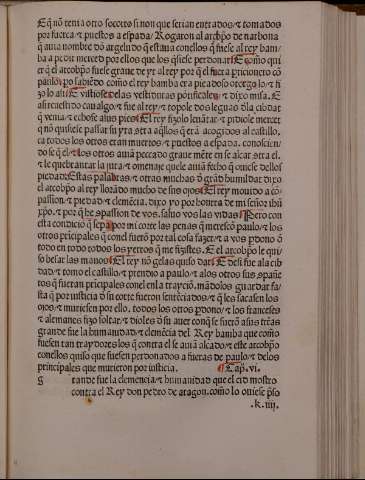 E q̃ nõ tenia otro socorro si non que serian entrados / ⁊ tomados
por fuerça / ⁊ puestos a espada / Rogaron al arçbp̃o de narbona
q̃ auia nombre dõ argeldo q̃ estaua conellos q̃ fuese al rey bam/
ba a pedir merced por ellos que los q̃siese perdonar / E como qui
er q̃ el arcobp̃o fuese graue de yr al rey por q̃ el fuera pricionero cõ
paulo / po sabiẽdo como el rey bamba era piedoso otorgo lo / ⁊ fi
zo lo asi / E vistiose de las vestiduras põtificales / ⁊ dixo misa. E
asi reuestido caualgo / ⁊ fue al rey / ⁊ topole dos leguas dla cibdat
q̃ venia / ⁊ echose a sus pies / El rey fizolo leuãtar / ⁊ pidiole merçet
q̃ nõ quisiese passar su yra sobre aq̃llos q̃ erã acogidos al castillo.
ca todos los otros eran muertos / ⁊ puestos a espada. conoscien/
do se q̃ el / ⁊ los otros auiã peccado graue mẽte en se alçar contra el.
⁊ le quebrantar la jura / ⁊ omenaje que le auiã fecho q̃ ouiese dellos
piedad / Estas palabras / ⁊ otras muchas d̃ grãd humildat dixo
el arcobp̃o al rey llorãdo mucho de sus ojos / El rey mouido a cõ/
passion / ⁊ piedad ⁊ clemẽcia. dixo yo por honrra de mi señor ihũ
xp̃o / ⁊ por q̃ he compassion de vos. saluo vos las vidas / Pero con
esta condiciõ q̃ sepa por mi corte las penas q̃ meresçio paulo / ⁊ los
otros principales que conel fuerõ por tal cosa fazer / ⁊ a vos p̃dono d̃
todo en todo todos los yerros que me fizistes. E el arcobp̃o le qui/
so besar las manos / El rey nõ gelas quiso dar / E desi fue ala cib
dad / ⁊ tomo el castillo / ⁊ prendio a paulo / ⁊ alos otros sus españe
tos q̃ fueran principales conel enla trayciõ. mãdolos guardar fa/
sta q̃ por justicia d̃ su corte fueron sentẽciados / ⁊ q̃ les sacasen los
ojos / ⁊ muriesen por ello, todos los otros p̃dono / ⁊ los franceses
⁊ alemanes fizo soltar / ⁊ dioles d̃ su auer con q̃ se fuerõ a sus trras
grande fue la humanidad / ⁊ clemẽcia del Rey bamba que como
fuesen tan traydores los q̃ contra el se auiã alçado / ⁊ este arcobp̃o
conellos quiso que fuesen perdonados a fueras de paulo / ⁊ de los
principales que murieron por justicia. ¶ Cap̃. vi.
g rande fue la clemencia / ⁊ humanidad que el cid mostro
contra el Rey don pedro de aragon. como lo ouiese p̃so
.k. iiij.